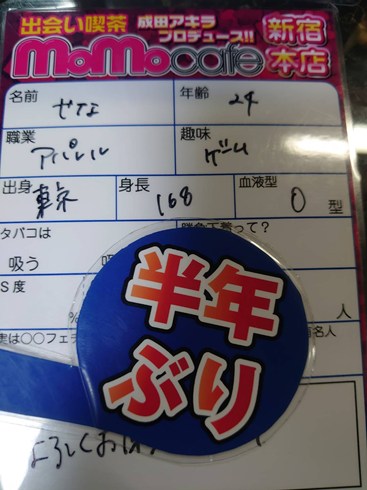 出会い喫茶 成田アキラ プロデュース!! 新宿
MoMocafe 本店
名前 ぜな 年齢 24
職業 アパレル 趣味 ゲーム
出身 東京 身長 168 血液型 O 型
タバコは って?
吸う
S度 % 人
実は〇〇フェチ 有名人
半年
ぶり
よろしくおね